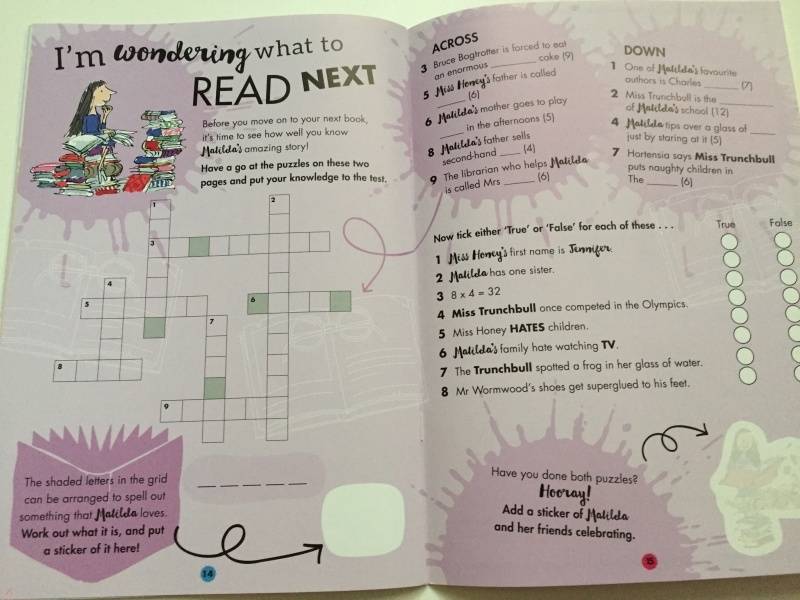 I'm wondering what to
READ NEXT
Before you move on to your next book,
it's time to see how well you know
Matilda's amazing story!
Have a go at the puzzles on these two
pages and put your knowledge to the test.
1
2
3
4
5
6
7
8
9
The shaded letters in the grid
can be arranged to spell out
something that Matilda loves.
Work out what it is, and put
a sticker of it here!
14
ACROSS
3 Bruce Bogtrotter is forced to eat
an enormous ______ cake (9)
5 Miss Honey's father is called
______ (6)
6 Matilda's mother goes to play
______ in the afternoons (5)
8 Matilda's father sells
second-hand ______ (4)
9 The librarian who helps Matilda
is called Mrs ______ (6)
DOWN
1 One of Matilda's favourite
authors is Charles ______ (7)
2 Miss Trunchbull is the ______
of Matilda's school (12)
4 Matilda tips over a glass of ______
just by staring at it (5)
7 Hortensia says Miss Trunchbull
puts naughty children in
The ______ (6)
Now tick either 'True' or 'False' for each of these . . .
True False
1 Miss Honey's first name is Jennifer.
2 Matilda has one sister.
3 8 x 4 = 32
4 Miss Trunchbull once competed in the Olympics.
5 Miss Honey HATES children.
6 Matilda's family hate watching TV.
7 The Trunchbull spotted a frog in her glass of water.
8 Mr Wormwood's shoes get superglued to his feet.
Have you done both puzzles?
Hooray!
Add a sticker of Matilda
and her friends celebrating.
15